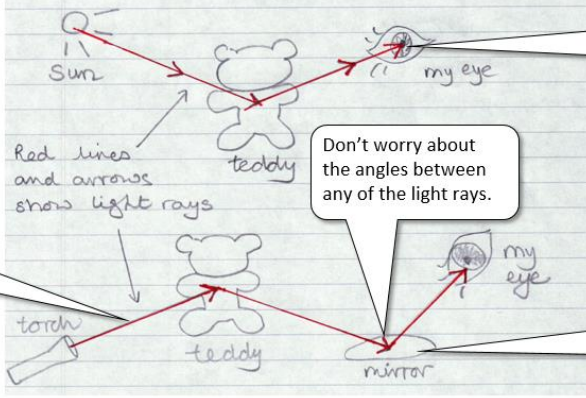 Sun
my eye
teddy
Red lines
and arrows
show light rays
Don't worry about
the angles between
any of the light rays.
my
eye
torch
teddy
mirror